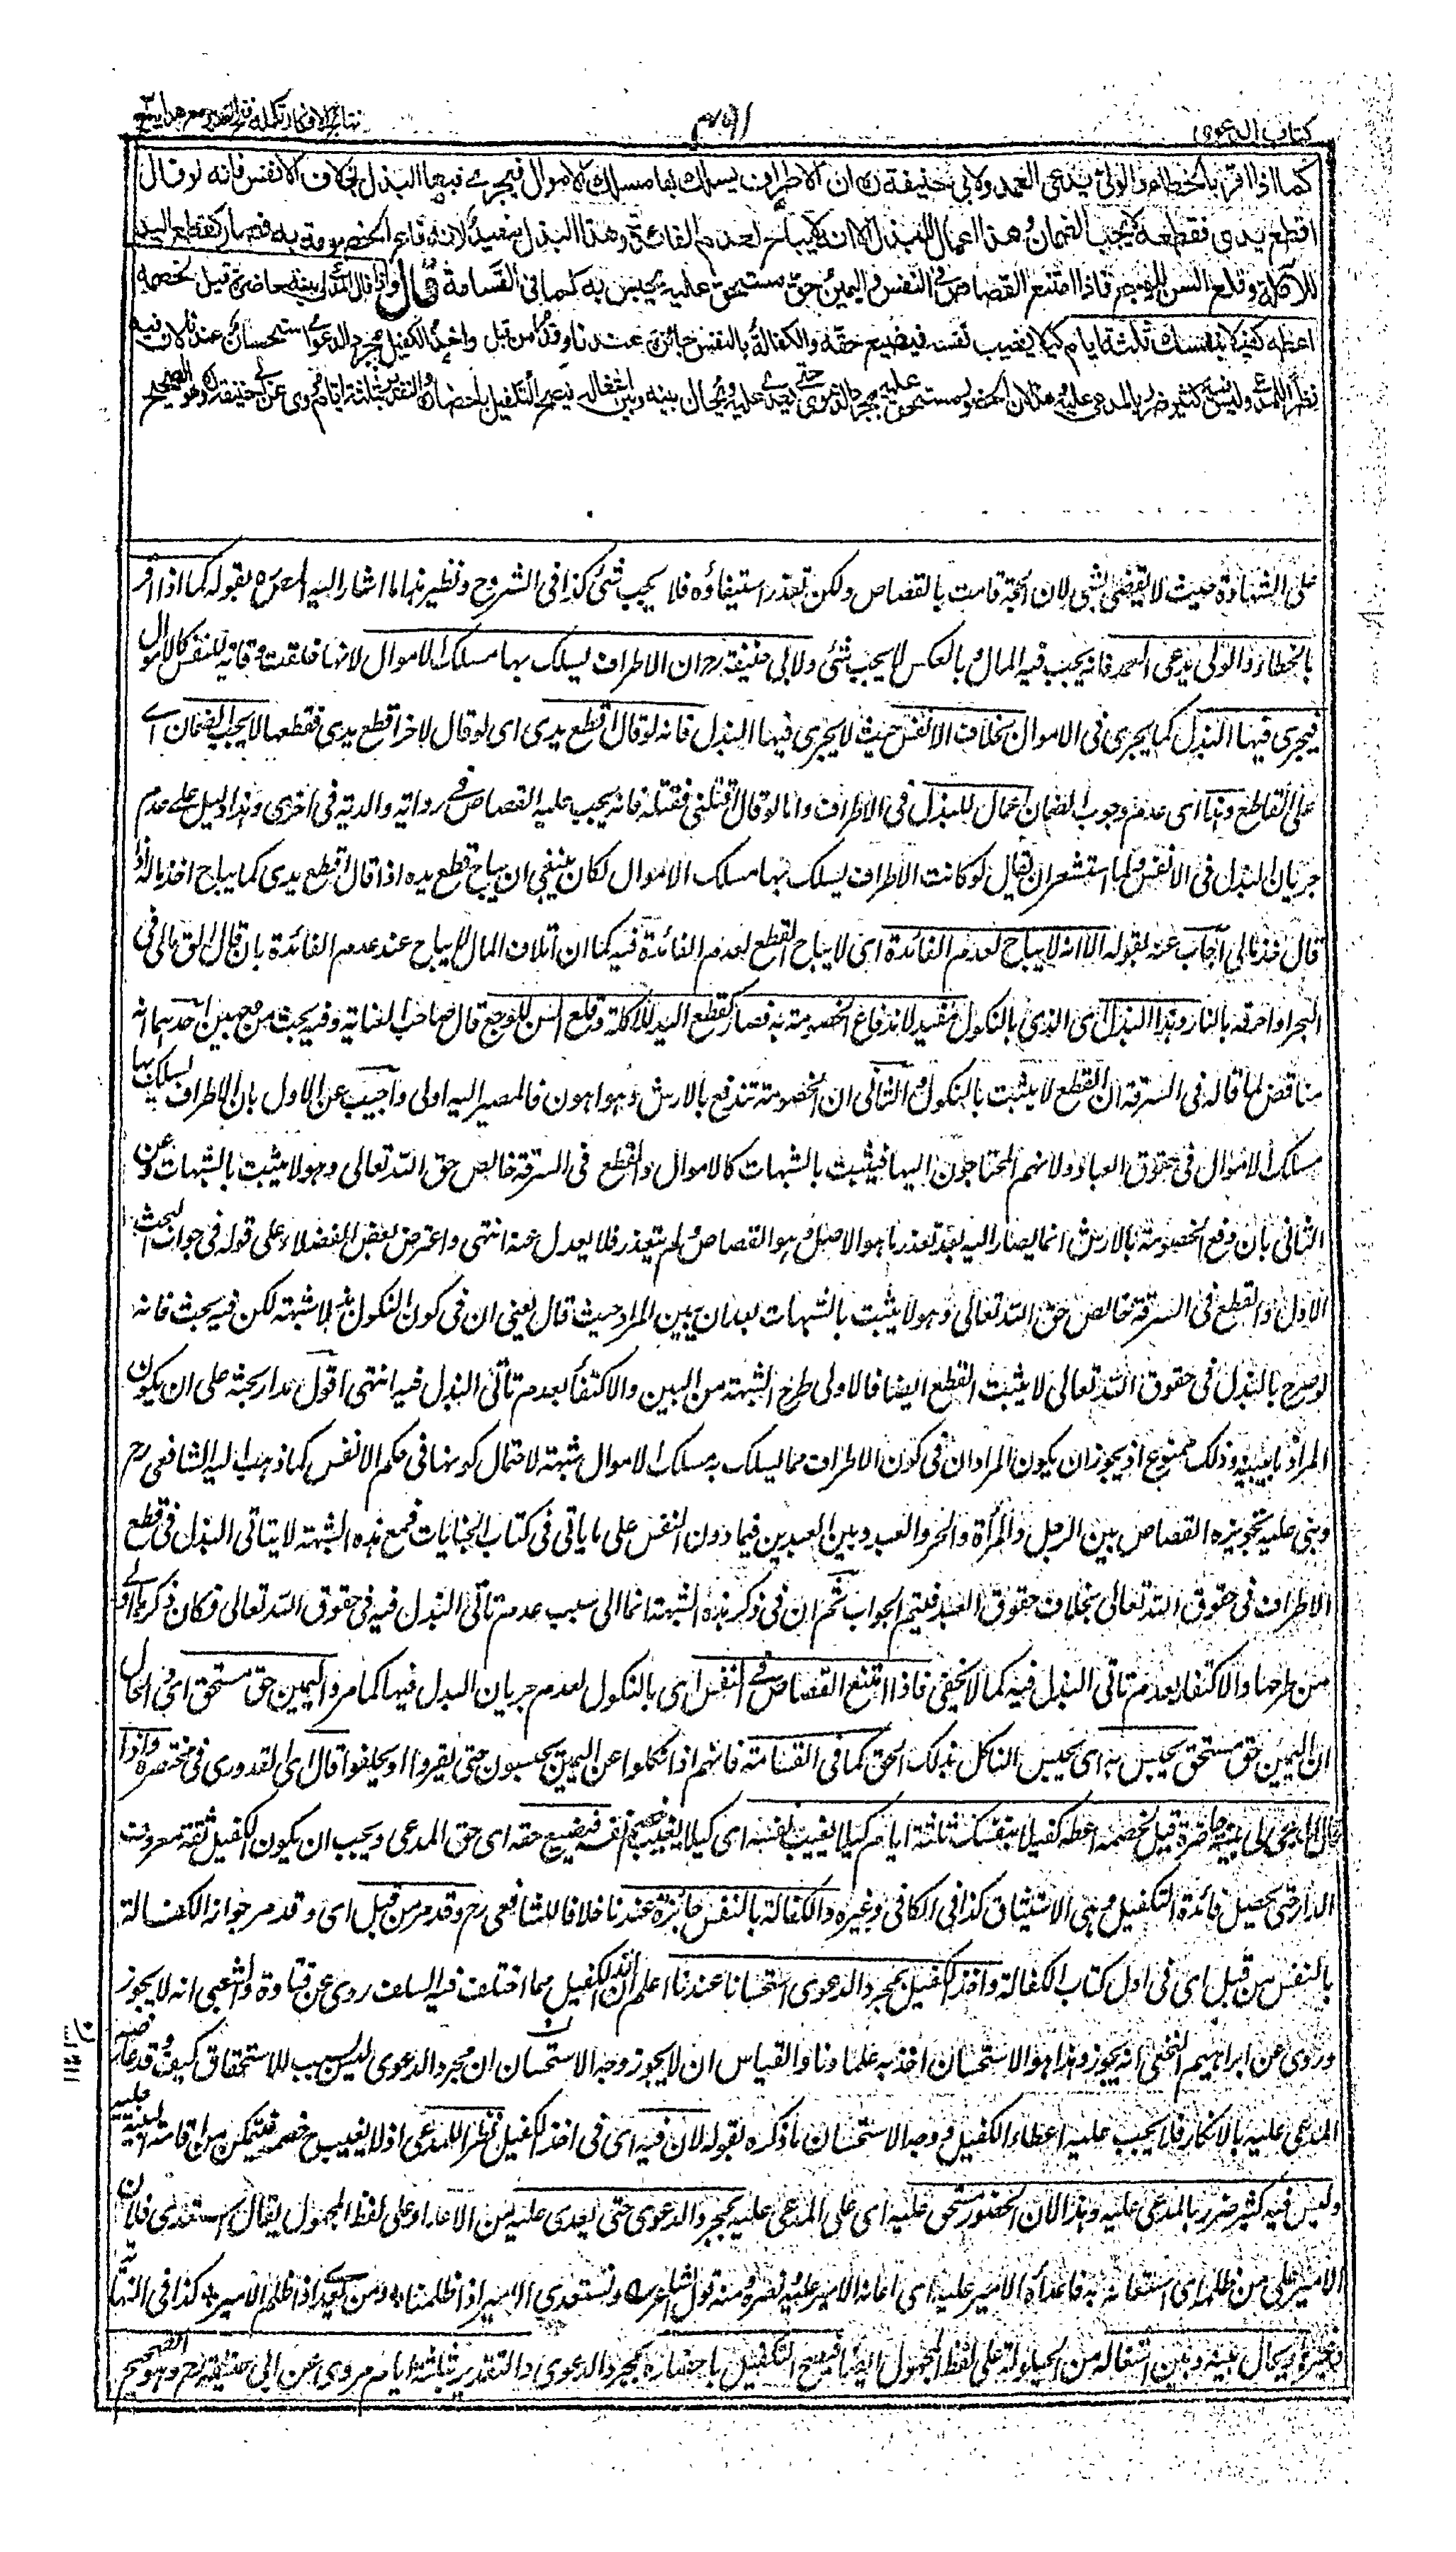 كتاب الدعوى
نتائج الافكار تكملة فتح القدير مع هداية
كما اذا اقر بالخطاء والولي يدعي العمد ولابي حنيفة ره ان الاطراف يسلك بها مسلك الاموال فيجري فيها البذل بخلاف الانفس فانه لو قال
اقطع يدي فقطعه لا يجب الضمان وهذا اعمال للبذل الا انه لا يباح لعدم الفائدة وهذا البذل مفيد لاندفاع الخصومة به فصار كقطع اليد
للآكلة وقلع السن للوجع فاذا امتنع القصاص في النفس واليمين حق مستحق عليه يحبس به كما في القسامة قال واذا قال المدعي لي بينة حاضرة قيل لخصمه
اعطه كفيلا بنفسك ثلثة ايام كيلا يغيب نفسه فيضيع حقه والكفالة بالنفس جائزة عندنا وقد مر من قبل واخذ الكفيل بمجرد الدعوى استحسان عندنا لان فيه
نظرا للمدعي وليس فيه كثير ضرر بالمدعى عليه وهذا لان الحضور مستحق عليه بمجرد الدعوى حتى يعدى عليه ويحال بينه وبين اشغاله فيصح التكفيل باحضاره والتقدير بثلثة ايام مروي عن ابي حنيفة ره وهو الصحيح
على الشهادة حيث لا يقضى بشئ لان الحجة قامت بالقصاص ولكن تعذر استيفاؤه فلا يجب شئ كذا في الشروح ونظير هذا ما اشار اليه المص ره بقوله كما اذا اقر
بالخطاء والولي يدعي العمد فانه يجب فيه المال وبالعكس لا يجب شئ ولابي حنيفة رح ان الاطراف يسلك بها مسلك الاموال لانها خلقت وقاية للنفس كالاموال
فيجري فيها البذل كما يجري في الاموال بخلاف الانفس حيث لا يجري فيها البذل فانه لو قال اقطع يدي اى لو قال لاخر اقطع يدي فقطعها لا يجب الضمان اے
على القاطع وهذا اى عدم وجوب الضمان اعمال للبذل في الاطراف واما لو قال اقتلني فقتله فانه يجب عليه القصاص في رواية والدية في اخرى وهذا دليل على عدم
جريان البذل في الانفس ولما استشعر ان يقال لو كانت الاطراف يسلك بها مسلك الاموال لكان ينبغي ان يباح قطع يده اذا قال اقطع يدي كما يباح اخذ ماله اذا
قال خذ مالي اجاب عنه بقوله الا انه لا يباح لعدم الفائدة اى لا يباح القطع لعدم الفائدة فيه كما ان اتلاف المال لا يباح عند عدم الفائدة بان قال الق مالي في
البحر او احرقه بالنار وهذا البذل اى الذي بالنكول مفيد لاندفاع الخصومة به فصار كقطع اليد للآكلة وقلع السن للوجع قال صاحب العناية وفيه بحث من وجهين احدهما انه
مناقض لما قاله في السرقة ان القطع لا يثبت بالنكول والثاني ان الخصومة تندفع بالارش وهو اهون فالمصير اليه اولى واجيب عن الاول بان الاطراف يسلك بها
مسلك الاموال في حقوق العباد ولانهم المحتاجون اليها فيثبت بالشبهات كالاموال والقطع في السرقة خالص حق الله تعالى وهو لا يثبت بالشبهات وعن
الثاني بان دفع الخصومة بالارش انما يصار اليه بعد تعذر ما هو الاصل وهو القصاص ولم يتعذر فلا يعدل عنه انتهى واعترض بعض الفضلاء على قوله في جواب البحث
الاول والقطع في السرقة خالص حق الله تعالى وهو لا يثبت بالشبهات بعد ان يبين المراد حيث قال يعني ان في كون النكول بذلا شبهة لكن فيه بحث فانه
لو صرح بالبذل في حقوق الله تعالى لا يثبت القطع ايضا فالاولى طرح الشبهة من البين والاكتفاء بعدم تأتي البذل فيه انتهى اقول مدار بحثه على ان يكون
المراد ما بينه وذلك ممنوع اذ يجوز ان يكون المراد ان في كون الاطراف مما يسلك به مسلك الاموال شبهة لاحتمال كونها في حكم الانفس كما ذهب اليه الشافعي رح
وبنى عليه تجويزه القصاص بين الرجل والمرأة والحر والعبد وبين العبدين فيما دون النفس على ما ياتي في كتاب الجنايات فمع هذه الشبهة لا يتاتى البذل في قطع
الاطراف في حقوق الله تعالى بخلاف حقوق العبد فيتم الجواب ثم ان في ذكر هذه الشبهة ايماء الى سبب عدم تأتي البذل فيه في حقوق الله تعالى فكان ذكرها اولے
من طرحها والاكتفاء بعدم تأتي البذل فيه كما لا يخفى فاذا امتنع القصاص في النفس اى بالنكول لعدم جريان البذل فيها كما مر واليمين حق مستحق اى والحال
ان اليمين حق مستحق يحبس به اى يحبس الناكل بذلك الحق كما في القسامة فانهم اذا نكلوا عن اليمين يحبسون حتى يقروا او يحلفوا قال اى القدوري في مختصره واذا
قال المدعي لي بينة حاضرة قيل لخصمه اعطه كفيلا بنفسك ثلثة ايام كيلا يغيب نفسه اى كيلا يغيب خصمه نفسه فيضيع حقه اى حق المدعي ويجب ان يكون الكفيل ثقة معروف
الدار حتى يحصل فائدة التكفيل وهي الاستيثاق كذا في الكافي وغيره والكفالة بالنفس جائزة عندنا خلافا للشافعي رح وقد مر من قبل اى وقد مر جواز الكفالة
بالنفس من قبل اى في اول كتاب الكفالة واخذ الكفيل بمجرد الدعوى استحسانا عندنا اعلم ان اخذ الكفيل مما اختلف فيه السلف روي عن قتادة والشعبي انه لا يجوز
وروي عن ابراهيم النخعي انه يجوز وهذا هو الاستحسان اخذ به علماؤنا والقياس ان لا يجوز وجه الاستحسان ان مجرد الدعوى ليس بسبب للاستحقاق كيف وقد عارضه
المدعى عليه بالانكار فلا يجب عليه اعطاء الكفيل ووجه الاستحسان ما ذكره بقوله لان فيه اى في اخذ الكفيل نظرا للمدعي اذ لا يغيب خصمه فيتمكن من اقامة البينة عليه
وليس فيه كثير ضرر بالمدعى عليه وهذا لان الحضور مستحق عليه اى على المدعى عليه بمجرد الدعوى حتى يعدى عليه من الاعداء وعلى لفظ المجهول يقال استعدى فلان
الامير على من ظلمه اى استعان به فاعداه الامير عليه اى اعانه الامير عليه ونصره ومنه قول الشاعر ونستعدي الامير اذا ظلمنا ومن يعدي اذا ظلم الامير كذا في النهاية
وغيرها ويحال بينه وبين اشغاله من الحيلولة على لفظ المجهول ايضا فيصح التكفيل باحضاره بمجرد الدعوى والتقدير بثلثة ايام مروي عن ابي حنيفة رح وهو الصحيح